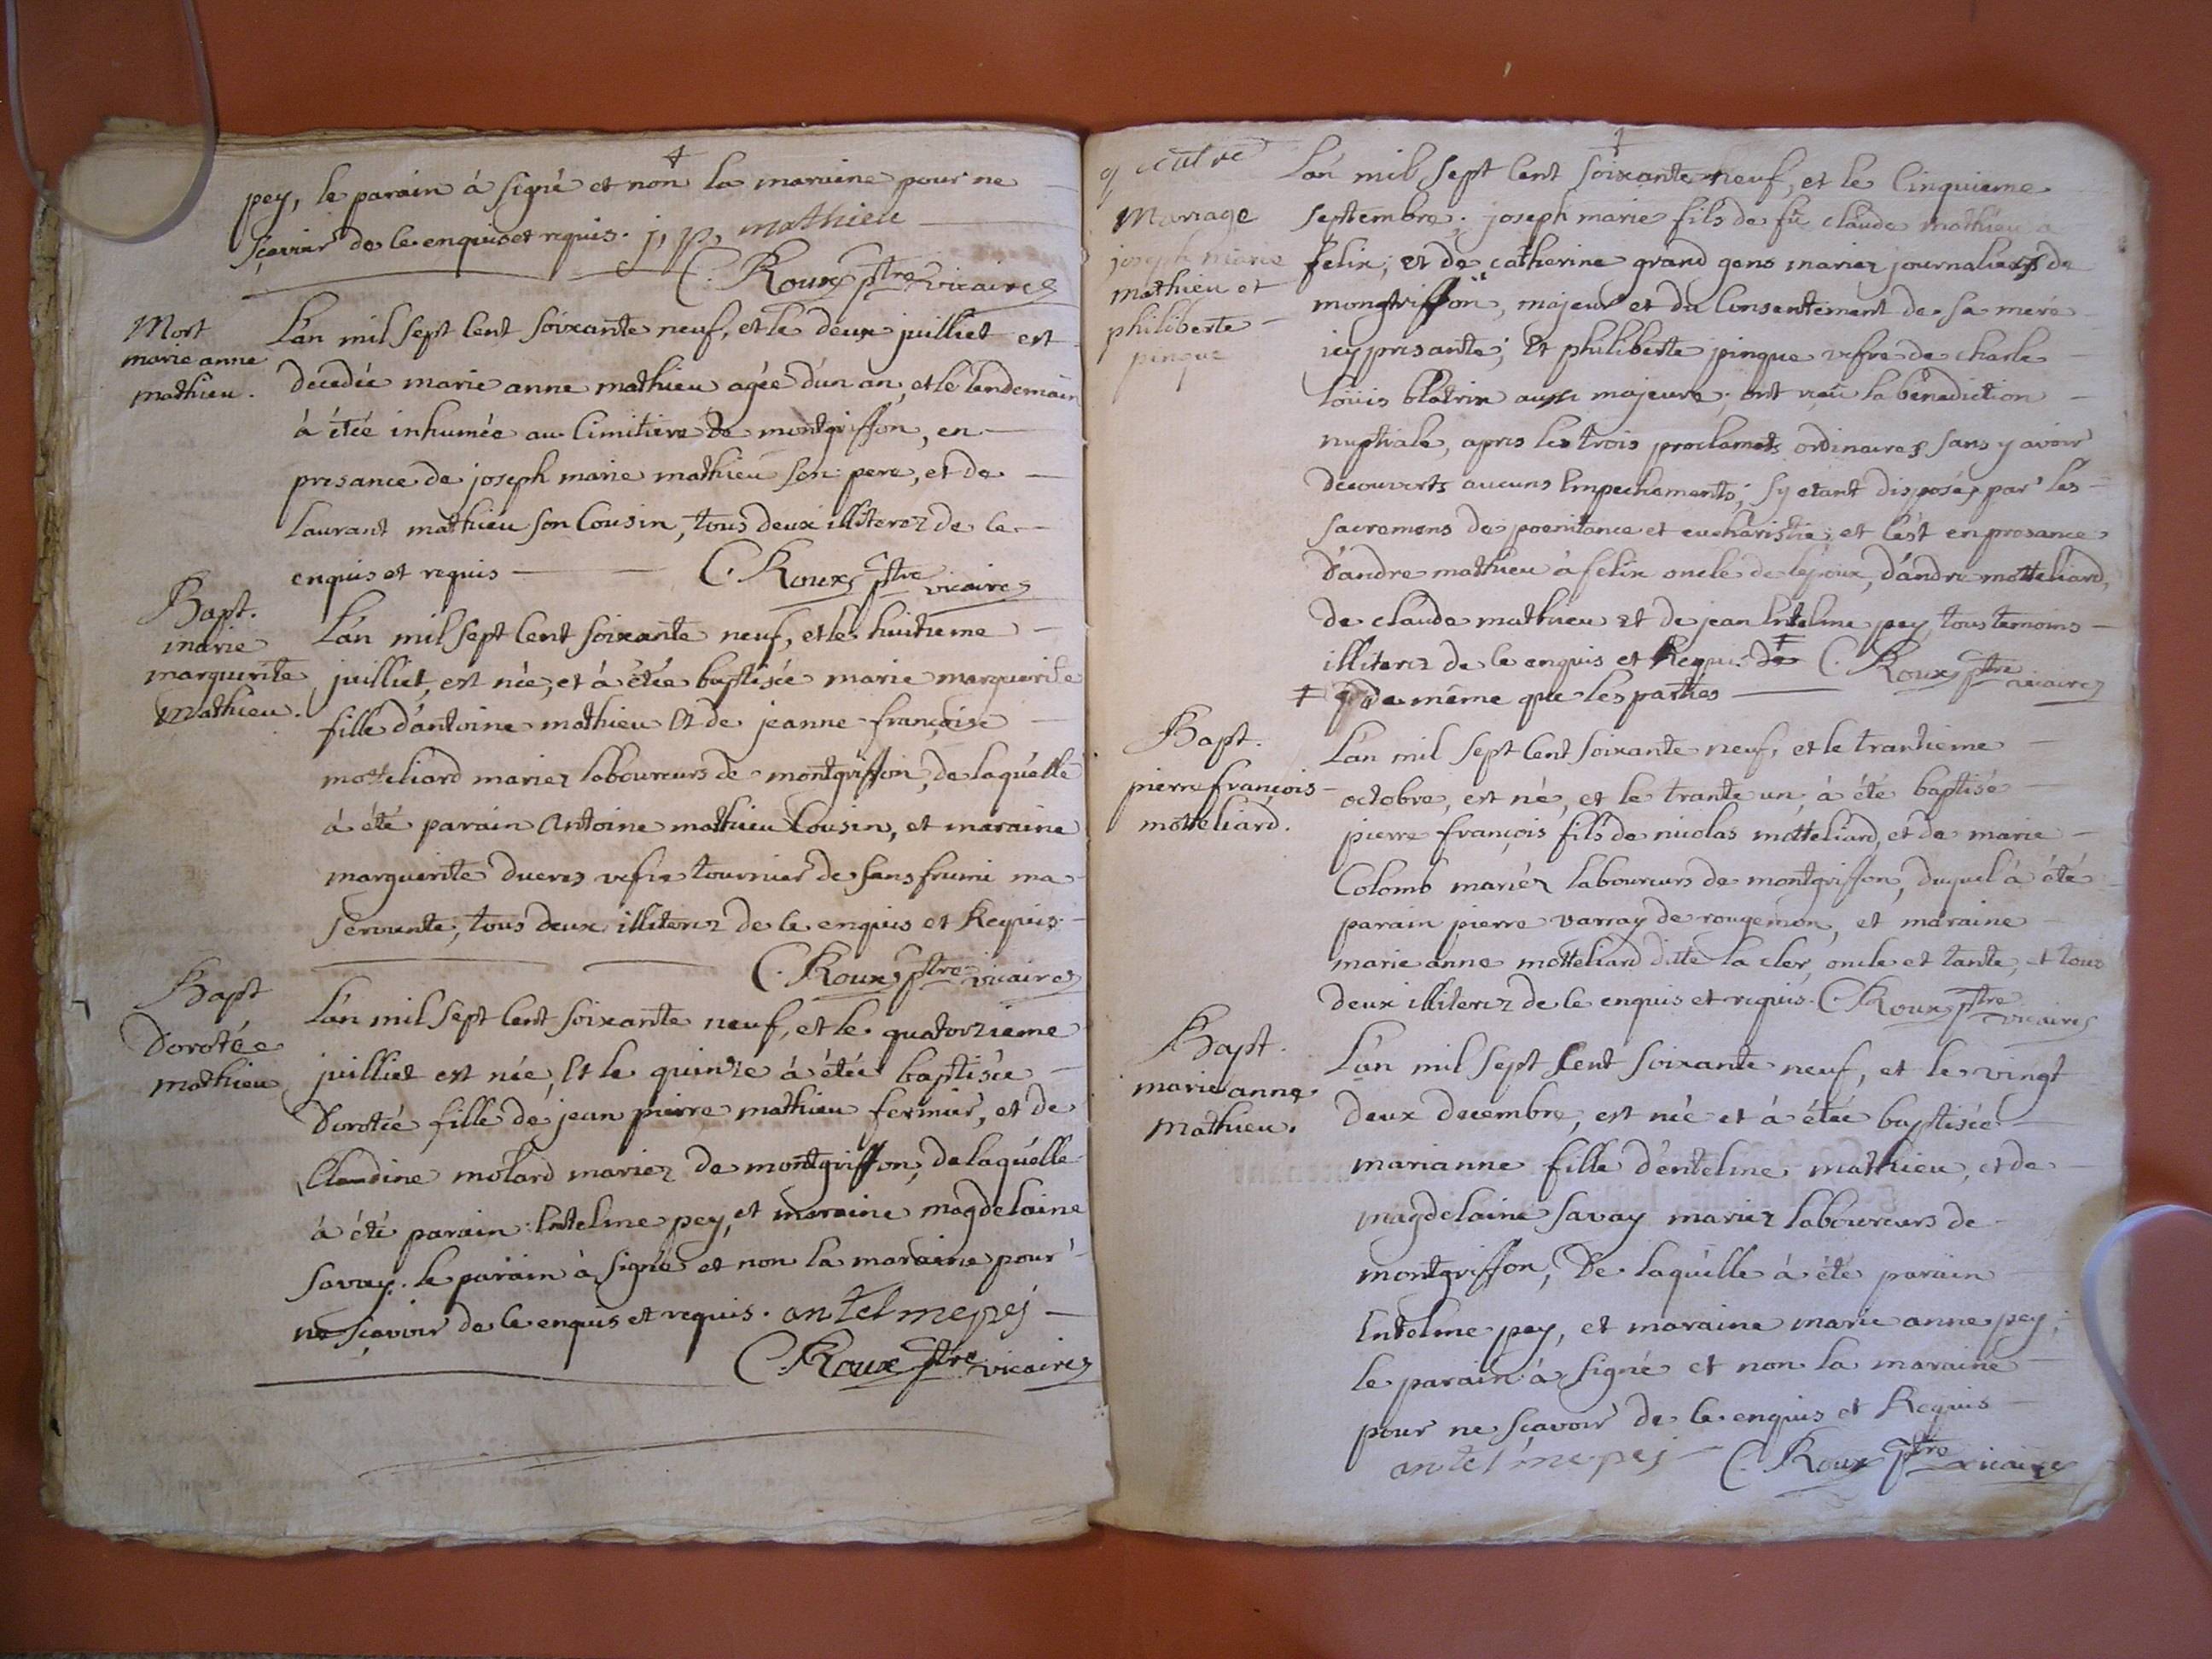 pey, le parain à signé et non la maraine pour ne
sçavoir de ce enquis et requis. j, p, mathieu
C. Roux ptre vicaire
Mort
marie anne
mathieu.
L'an mil sept cent soixante neuf, et le deux juilliet est
decedée marie anne mathieu agée d'un an, et le lendemain
à étée inhumée au cimitiere de montgriffon, en
presance de joseph marie mathieu son pere, et de
laurant mathieu son cousin, tous deux illiterez de ce
enquis et requis C. Roux ptre vicaire
Bapt.
marie
marguerite
mathieu.
L'an mil sept cent soixante neuf, et le huitieme
juilliet, est née, et à étée baptisée marie marguerite
fille d'antoine mathieu et de jeanne françoise
motteliard mariez laboureurs de montgriffon, de laquelle
à été parain antoine mathieu cousin, et maraine
marguerite vefve tournier de ma
servante, tous deux illiterez de ce enquis et Requis.
C. Roux ptre vicaire
Bapt
Dorotée
mathieu
L'an mil sept cent soixante neuf, et le quatorzieme
juilliet est née, et le quinze à étée baptisée
Dorotée fille de jean pierre mathieu fermier, et de
Claudine molard mariez de montgriffon, de laquelle
à été parain Entelme pey, et maraine magdelaine
Savay. le parain à signé et non la maraine pour
ne sçavoir de ce enquis et requis. antelme pej
C. Roux ptre vicaire
quatre
Mariage
joseph marie
mathieu et
philiberte
pinque
L'an mil sept cent soixante neuf, et le cinquieme
septembre; joseph marie fils de fû claude mathieu a
felix, et de catherine grand gens mariez journaliers de
mongriffon, majeur et du consentement de sa mere
icy presante; Et philiberte pinque vefve de charle
loüis blatrix aussi majeure; ont reçu la bénediction
nuptiale, apres les trois proclamats ordinaires sans y avoir
decouverts aucuns Empechements; sy etant disposés par les
sacremens de poenitance et eucharistie; et c'est en presance
d'andre mathieu à felix oncle de lépoux, d'andre motteliard,
de claude mathieu et de jean Entelme pey, tous temoins
illiterez de ce enquis et Requis ‡ C. Roux ptre vicaire
‡ de même que les parties
Bapt.
pierre françois
motteliard.
L'an mil sept cent soixante neuf, et le trantieme
octobre, est né, et le trante un, à été baptisé
pierre françois fils de nicolas motteliard, et de marie
Colomb mariéz laboureurs de montgriffon, duquel à été
parain pierre varray de rougemon, et maraine
marie anne motteliard dite la cler, oncle et tante, et tous
deux illiterez de ce enquis et requis. C. Roux ptre
vicaire
Bapt.
marie anne
mathieu.
L'an mil sept cent soixante neuf, et le vingt
deux decembre, est née et à étée baptisée
marianne fille d'entelme mathieu, et de
magdelaine savay mariez laboureurs de
montgriffon, De laquelle à été parain
Entelme pey, et maraine marie anne pey,
le parain à signé et non la maraine
pour ne sçavoir de ce enquis et Requis
antelme pej C. Roux ptre vicaire